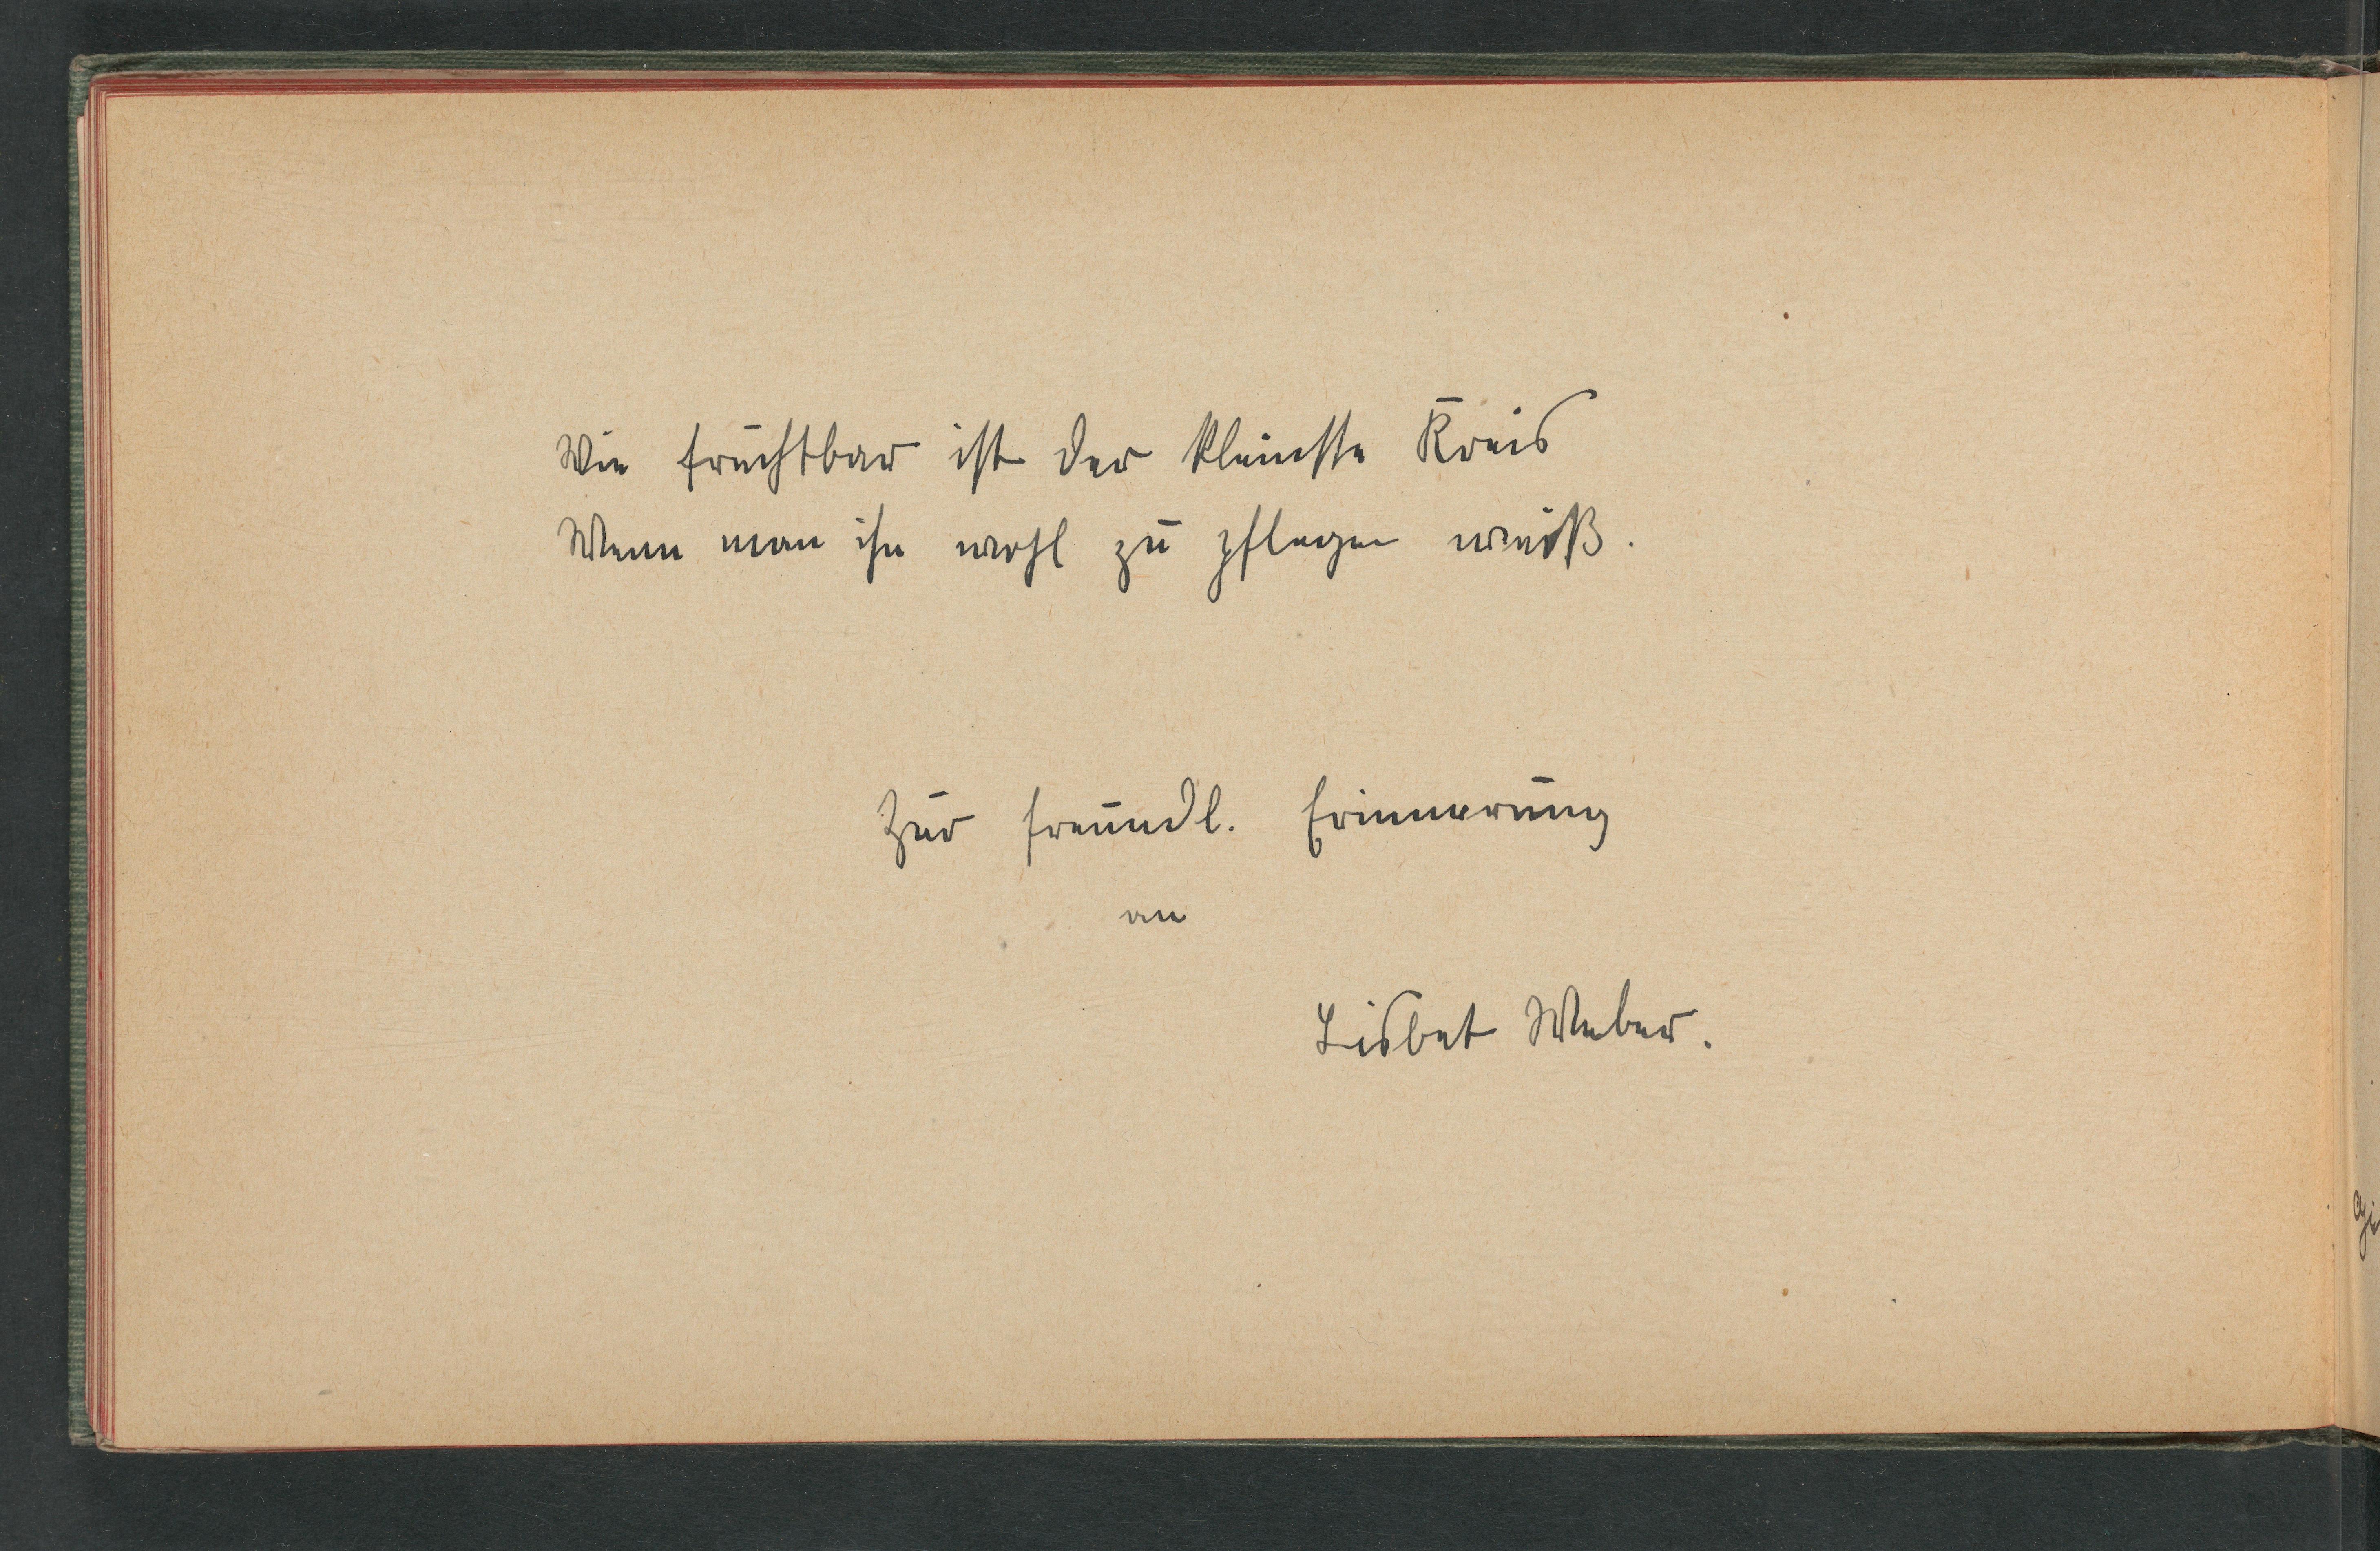 Wie fruchtbar ist der kleinste Kreis
Wenn man ihn wohl zu pflegen weiß.
Zur freundl. Erinnerung
an
Lisbet Weber.